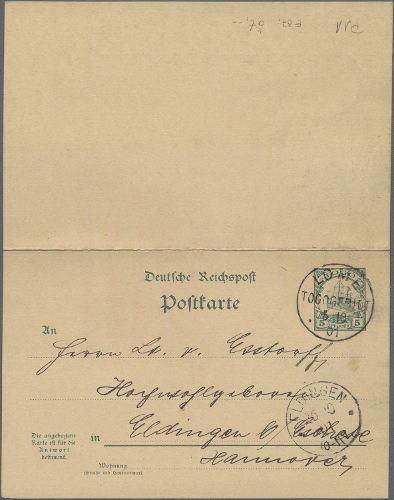 Deutsche Reichspost
Postkarte
LOME
TOGOGEBIET
5 10
01
5 5
An
Herrn Lt. v. Esstorff
Hochwohlgeboren
ELDINGEN
Die angebogene
Karte ist für die
Antwort
bestimmt.
in Eldingen b/ Eschede
Wohnung
(Straße und Hausnummer)
Hannover